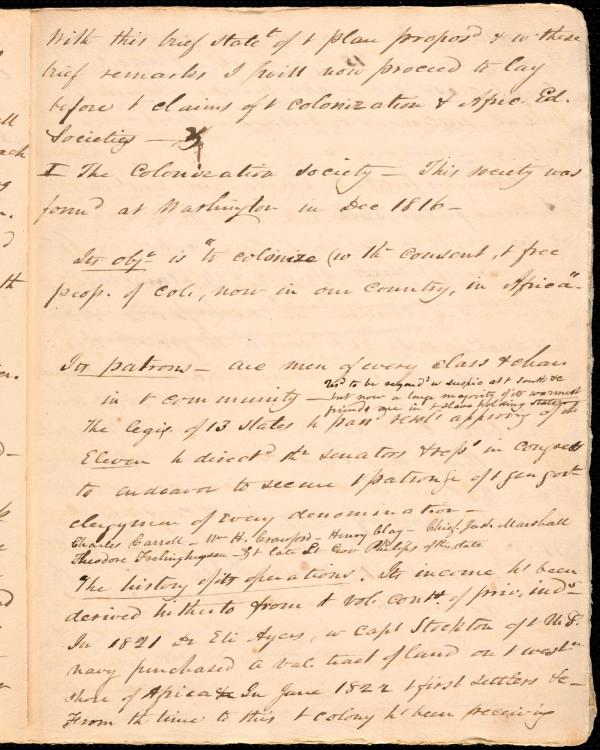 With this brief statet of t plan proposd & w these
brief remarks I will now proceed to lay
before t claims of t colonization & Afric. Ed.
Societies —
I The Colonization Society — This society was
formd at Washington in Dec 1816 —
Its objt is "to colonize (w thr consent, t free
peop. of col., now in our country, in Africa" —
Its patrons — are men of every class & char
in t community —
Usd to be regard w suspic at t south &c
but now a large majority of its warmest
friends are in t slave holding states
The legis. of 13 states h pasd resols approvg of it
Eleven h directd thr senators & reps in Congress
to endeavor to secure t patronge of t gen govt
clergymen of every denomination —
Charles Carroll — Wm H. Crawford — Henry Clay — Chief Just. Marshall
Theodore Frelinghuysen — & t late Lt Gov Philips of this state
The history of its operations. Its income hs been
derived hitherto from t vol. conts. of priv. inds —
In 1821 Dr Eli Ayres, w Capt Stockton of t U.S.
navy purchased a val. tract of land on t westn
shore of Africa & In June 1822 t first settlers &c —
From th time to this t colony hs been receiving